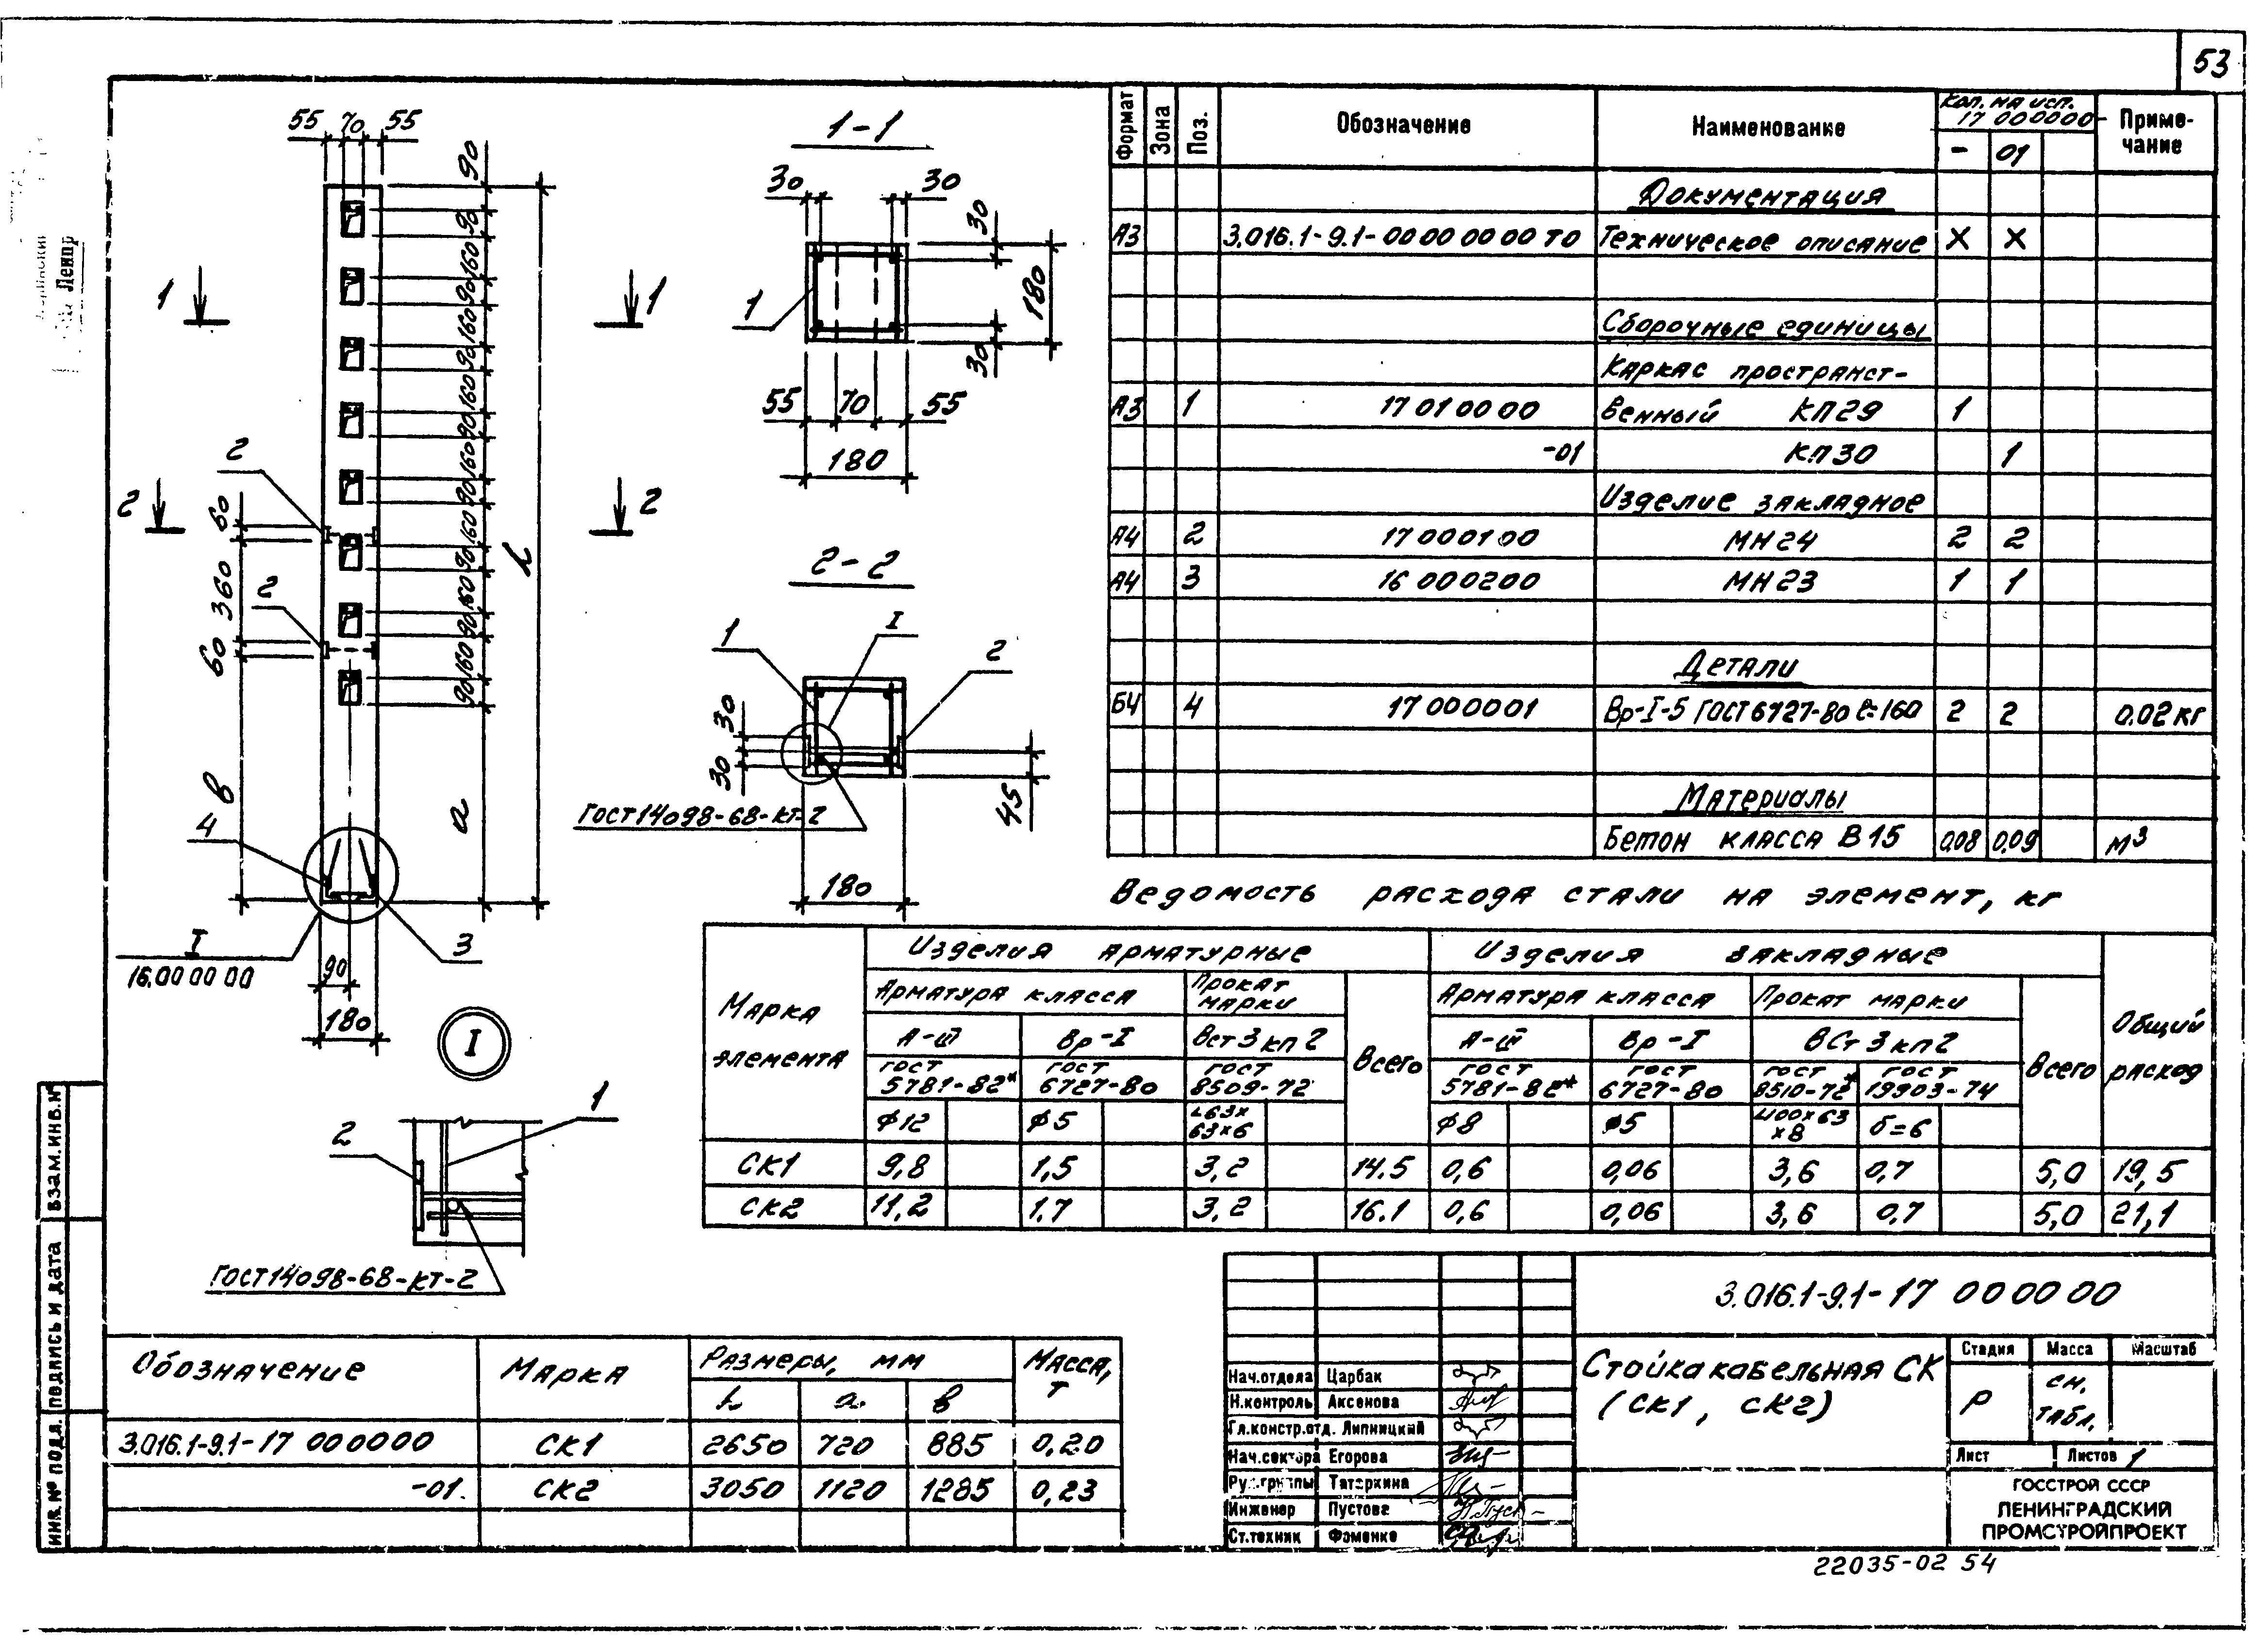 53
55 70 55
90
90 160 90 160 90 160 90 160 90 160 90 160 90 160 90
L
а
1 1
2 2
2
2
60
360
60
в
4
3
I
16.00 00 00
90
180
1-1
30 30
30
180
30
1
55 70 55
180
2-2
1
I
2
30
30
45
ГОСТ 14098-68-КТ-2
180
I
1
2
ГОСТ 14098-68-КТ-2
Формат Зона Поз. Обозначение Наименование Кол. на исп. 17 000000- Приме-чание
- 01
Документация
А3 3.016.1-9.1-00 00 00 00 ТО Техническое описание X X
Сборочные единицы
Каркас пространст-
А3 1 17 01 00 00 венный КП29 1
-01 КП30 1
Изделие закладное
А4 2 17 000100 МН24 2 2
А4 3 16 000200 МН23 1 1
Детали
Б4 4 17 000001 Вр-I-5 ГОСТ 6727-80 ℓ=160 2 2 0,02 кг
Материалы
Бетон класса В15 0,08 0,09 м³
Ведомость расхода стали на элемент, кг
Марка элемента Изделия арматурные Изделия закладные Общий расход
Арматура класса Прокат марки Всего Арматура класса Прокат марки Всего
А-III Вр-I ВСт3кп2 А-III Вр-I ВСт3кп2
ГОСТ 5781-82* ГОСТ 6727-80 ГОСТ 8509-72 ГОСТ 5781-82* ГОСТ 6727-80 ГОСТ 8510-72* ГОСТ 19903-74
ф12 ф5 L63×63×6 ф8 ф5 L100×63×8 δ=6
СК1 9,8 1,5 3,2 14.5 0,6 0,06 3,6 0,7 5,0 19,5
СК2 11,2 1.7 3,2 16.1 0,6 0,06 3,6 0,7 5,0 21,1
Обозначение Марка Размеры, мм Масса, т
L а в
3.016.1-9.1-17 000000 СК1 2650 720 885 0,20
-01 СК2 3050 1120 1285 0,23
3.016.1-9.1-17 00 00 00
Стойка кабельная СК
(СК1, СК2)
Стадия Масса Масштаб
Р см. табл.
Лист Листов 1
ГОССТРОЙ СССР
ЛЕНИНГРАДСКИЙ
ПРОМСТРОЙПРОЕКТ
Нач.отдела Царбак
Н.контроль Аксенова
Гл.констр.отд. Липницкий
Нач.сектора Егорова
Рук.группы Татаркина
Инженер Пустова
Ст.техник Фоменко
22035-02 54
Инв.№ подл. Подпись и дата Взам.инв.№
Ленпр